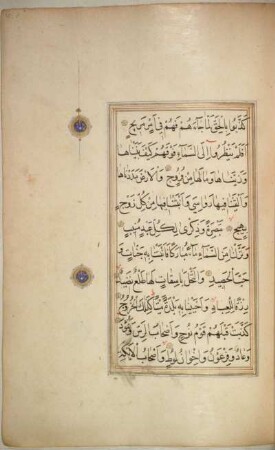 كَذَّبُوا بِالْحَقِّ لَمَّا جَاءَهُمْ فَهُمْ فِي أَمْرٍ مَرِيجٍ
أَفَلَمْ يَنْظُرُوا إِلَى السَّمَاءِ فَوْقَهُمْ كَيْفَ بَنَيْنَاهَا
وَزَيَّنَّاهَا وَمَا لَهَا مِنْ فُرُوجٍ وَالْأَرْضَ مَدَدْنَاهَا
وَأَلْقَيْنَا فِيهَا رَوَاسِيَ وَأَنْبَتْنَا فِيهَا مِنْ كُلِّ زَوْجٍ
بَهِيجٍ تَبْصِرَةً وَذِكْرَى لِكُلِّ عَبْدٍ مُنِيبٍ
وَنَزَّلْنَا مِنَ السَّمَاءِ مَاءً مُبَارَكًا فَأَنْبَتْنَا بِهِ جَنَّاتٍ وَ
حَبَّ الْحَصِيدِ وَالنَّخْلَ بَاسِقَاتٍ لَهَا طَلْعٌ نَضِيدٌ
رِزْقًا لِلْعِبَادِ وَأَحْيَيْنَا بِهِ بَلْدَةً مَيْتًا كَذَلِكَ الْخُرُوجُ
كَذَّبَتْ قَبْلَهُمْ قَوْمُ نُوحٍ وَأَصْحَابُ الرَّسِّ وَثَمُودُ
وَعَادٌ وَفِرْعَوْنُ وَإِخْوَانُ لُوطٍ وَأَصْحَابُ الْأَيْكَةِ